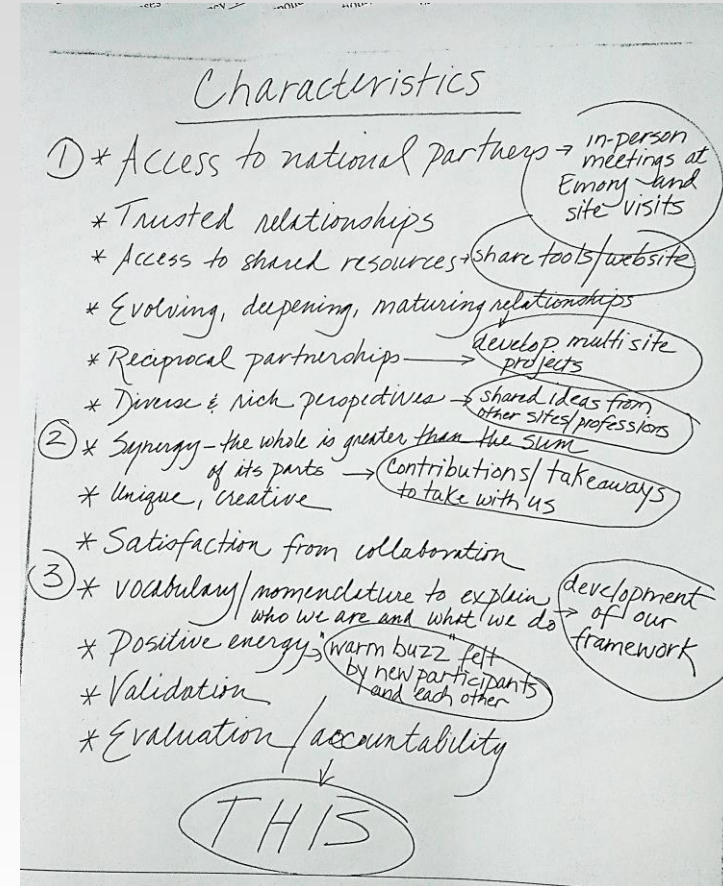 Characteristics
① * Access to national partners → in-person
meetings at
Emory and
site visits
* Trusted relationships
* Access to shared resources → share tools/website
* Evolving, deepening, maturing relationships
* Reciprocal partnerships → develop multi site
projects
* Diverse & rich perspectives → shared ideas from
other sites/professions
② * Synergy – the whole is greater than the sum
of its parts → contributions/takeaways
to take with us
* Unique, creative
* Satisfaction from collaboration
③ * vocabulary/nomenclature to explain
who we are and what we do → development
of our
framework
* Positive energy → "warm buzz" felt
by new participants
and each other
* Validation
* Evaluation/accountability
↓
THIS